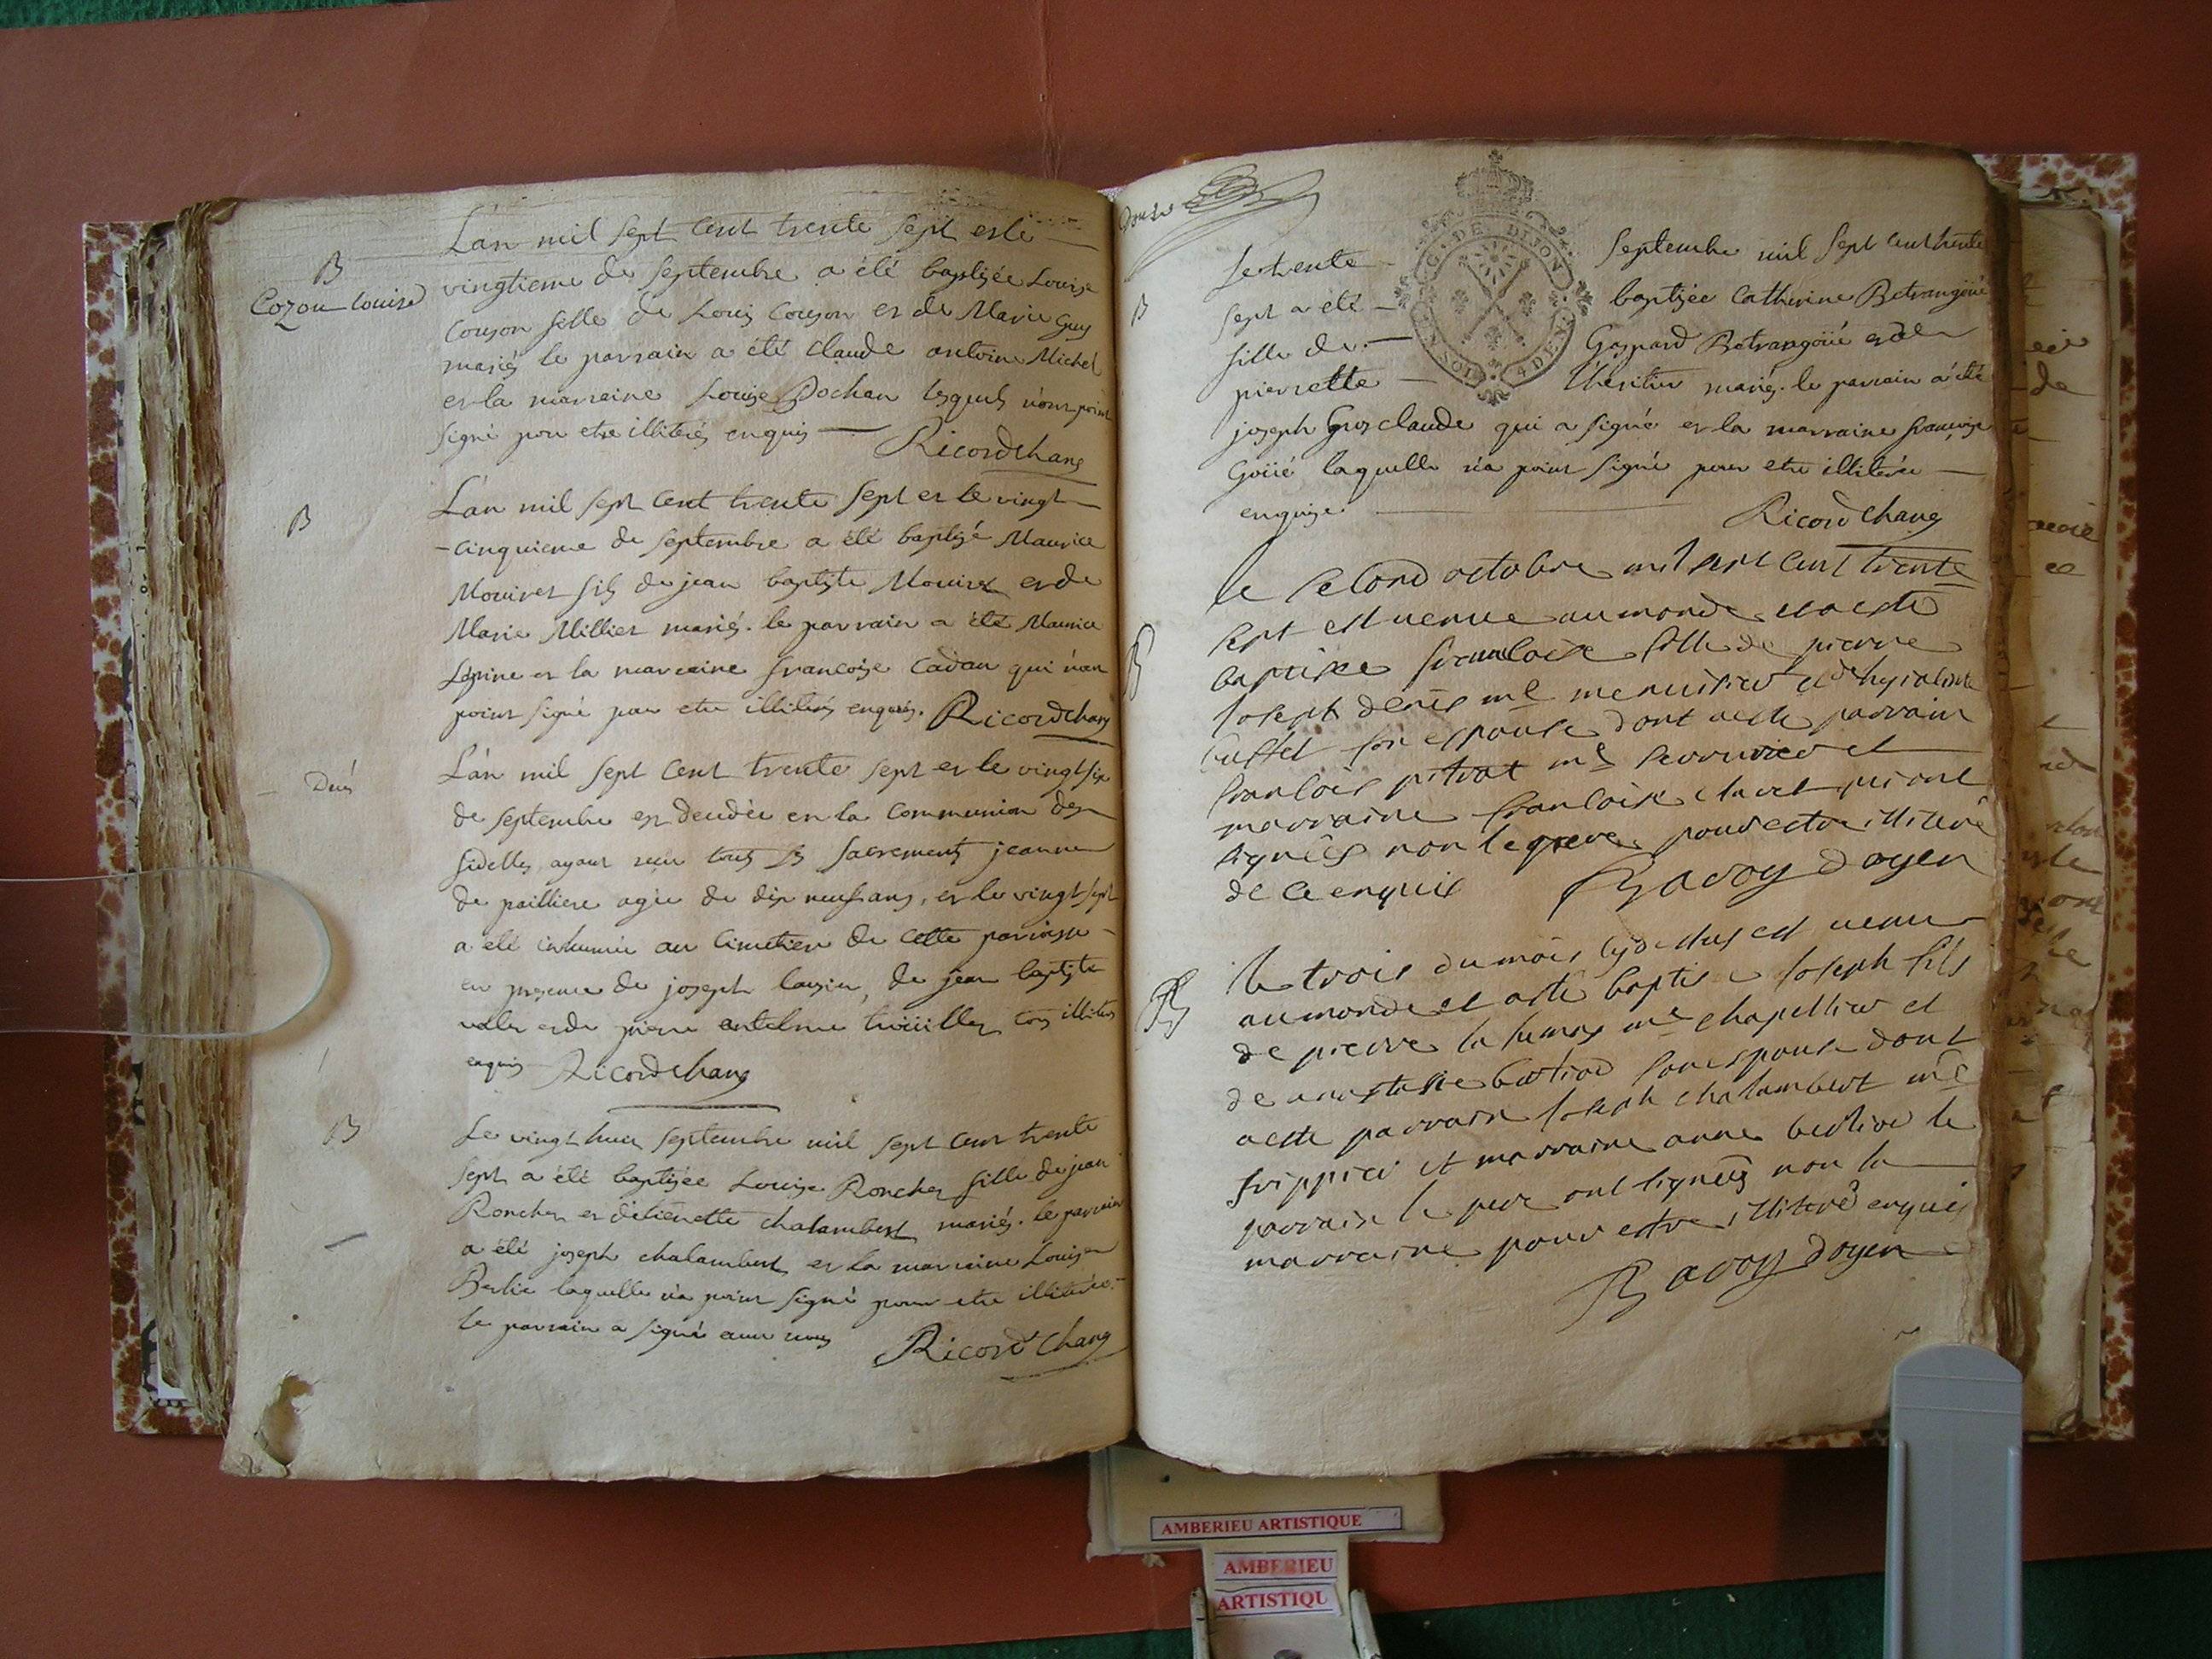 L'an mil sept cent trente sept et le
B
Cozon Louise
vingtieme de septembre a été baptisée Louise
Couzon fille de Louis Couzon et de Marie Guy
mariés le parrain a été Claude antoine Michel
et la marraine Louise Pochan lesquels n'ont point
signé pour etre illiterés enquis — Ricordchang
B
L'an mil sept cent trente sept et le vingt
cinquieme de septembre a été baptisé Maurice
Mouiret fils de jean baptiste Mouiret et de
Marie Millier mariés. le parrain a été Maurice
Lépine et la marraine francoise Cadan qui n'ont
point signé pour etre illiterés enquis. Ricordchang
L'an mil sept cent trente sept et le vingt six
de septembre est decedée en la Communion des
fidelles ayant recu tous les sacrements jeanne
de pailliere agée de dix neuf ans, et le vingt sept
a été inhumée au Cimetiere de cette parroisse
en presence de joseph de jean baptiste
et de pierre antelme tous illiterés
enquis Ricordchang
B
Le vingt huit septembre mil sept cent trente
sept a été baptisée Louise Roncher fille de jean
Roncher et d'etienette chalambert mariés. le parrain
a été joseph chalambert et la marraine Louise
Berlie laquelle n'a point signé pour etre illiterée.
le parrain a signé avec nous Ricordchang
Douze
G. DE DIJON
UN SOL 4 DEN.
B
le trente septembre mil sept cent trente
sept a été baptisée Catherine Betrangoüé
fille de Gaspard Betrangoüé et de
pierrette l'heritier mariés. le parrain a été
joseph Grosclaude qui a signé et la marraine francoise
Goüé laquelle n'a point signé pour etre illiterée
enquise. Ricordchang
B
le second octobre mil sept cent trente
sept est venue au monde et a esté
baptisée francoise fille de pierre
Joseph denis me menuisier et de hyacinte
son espouse dont a esté parrain
francois pitrat me serrurier et
marraine francoise clavel qui ont
signés non le pere pour estre illiteré
de ce enquis Ravoy doyen
B
le trois du mois cy dessus est venu
au monde et a esté baptisé Joseph fils
de pierre me chapellier et
de anastasie bertier son espouse dont
a esté parrain Joseph chalambert me
frippier et marraine anne bertier le
parrain le pere ont signés non la
marraine pour estre illiteré enquis
Ravoy doyen
AMBERIEU ARTISTIQUE
AMBERIEU
ARTISTIQU